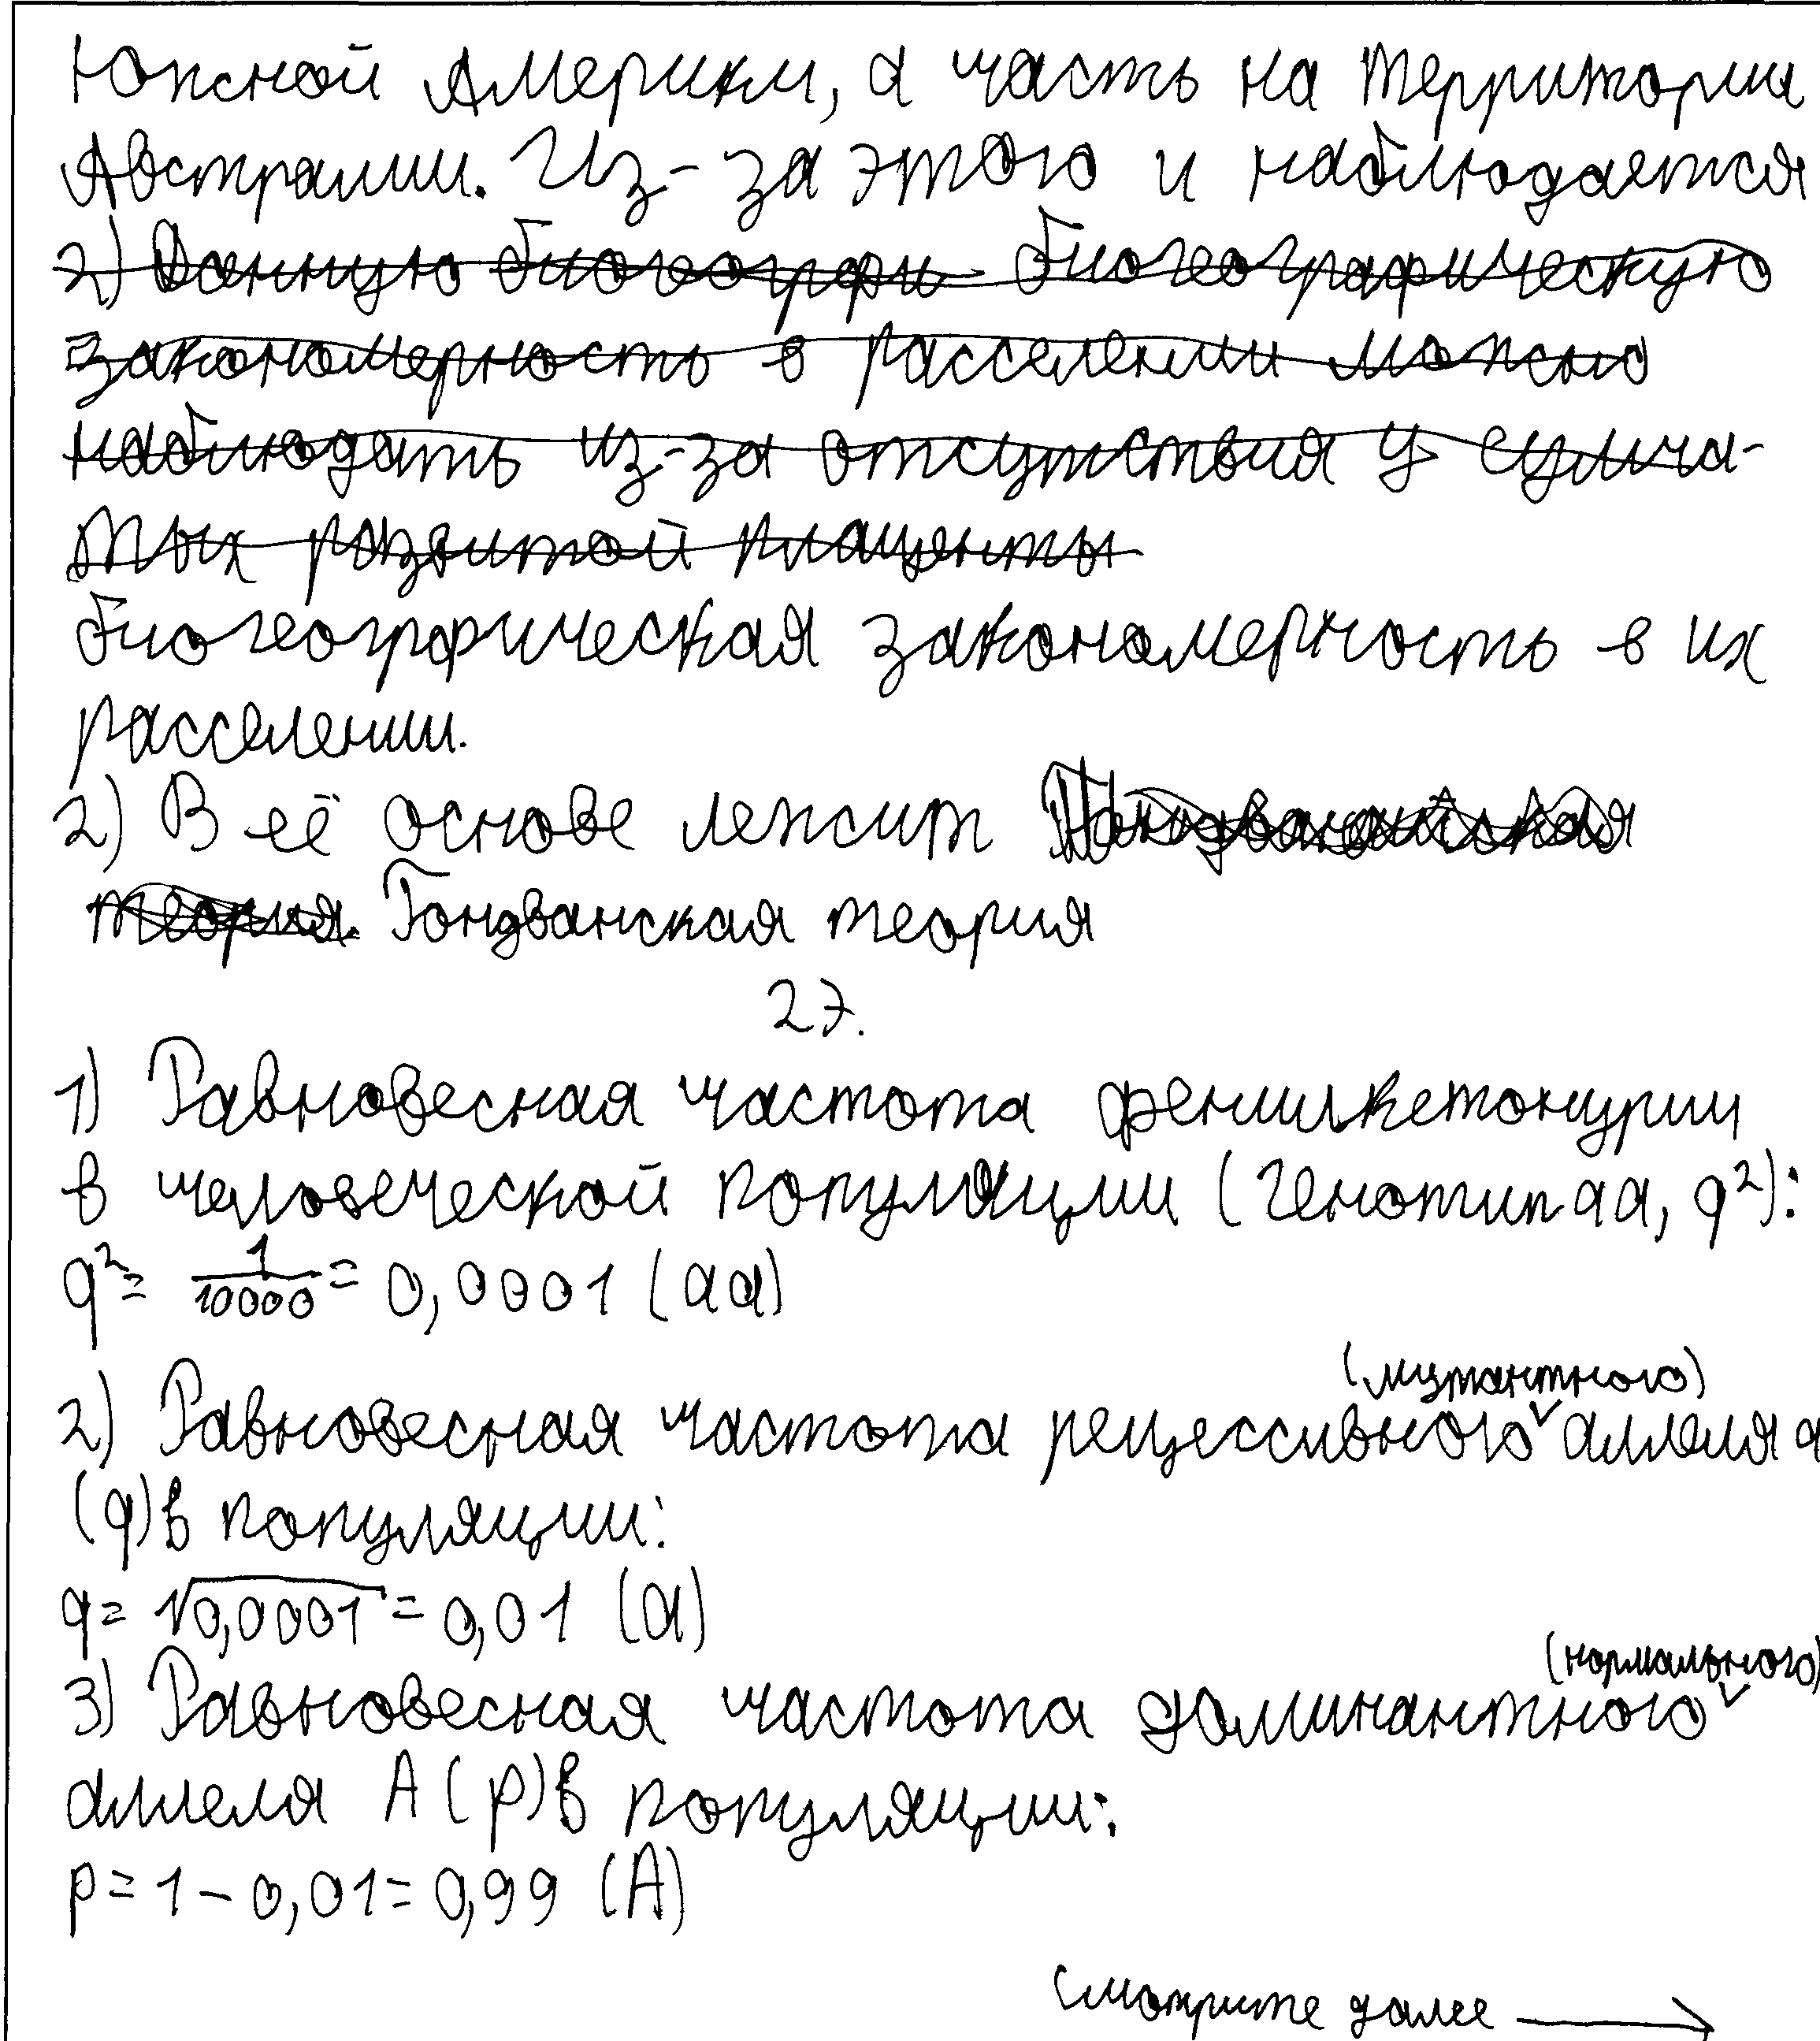 Южной Америки, а часть на территории
Австралии. Из-за этого и наблюдается
2) Данную биогеографи биогеографическую
закономерность в расселении можно
наблюдать из-за отсутствия у сумча-
тых развитой плаценты
биогеографическая закономерность в их
расселении.
2) В её основе лежит
теория. Гондванская теория
27.
1) Равновесная частота фенилкетонурии
в человеческой популяции (генотип aa, q²):
q² = 1/10000 = 0,0001 (aa)
(мутантного)
2) Равновесная частота рецессивного аллеля a
(q) в популяции:
q = √0,0001 = 0,01 (a)
(нормального)
3) Равновесная частота доминантного
аллеля A (p) в популяции:
p = 1 - 0,01 = 0,99 (A)
Смотрите далее →